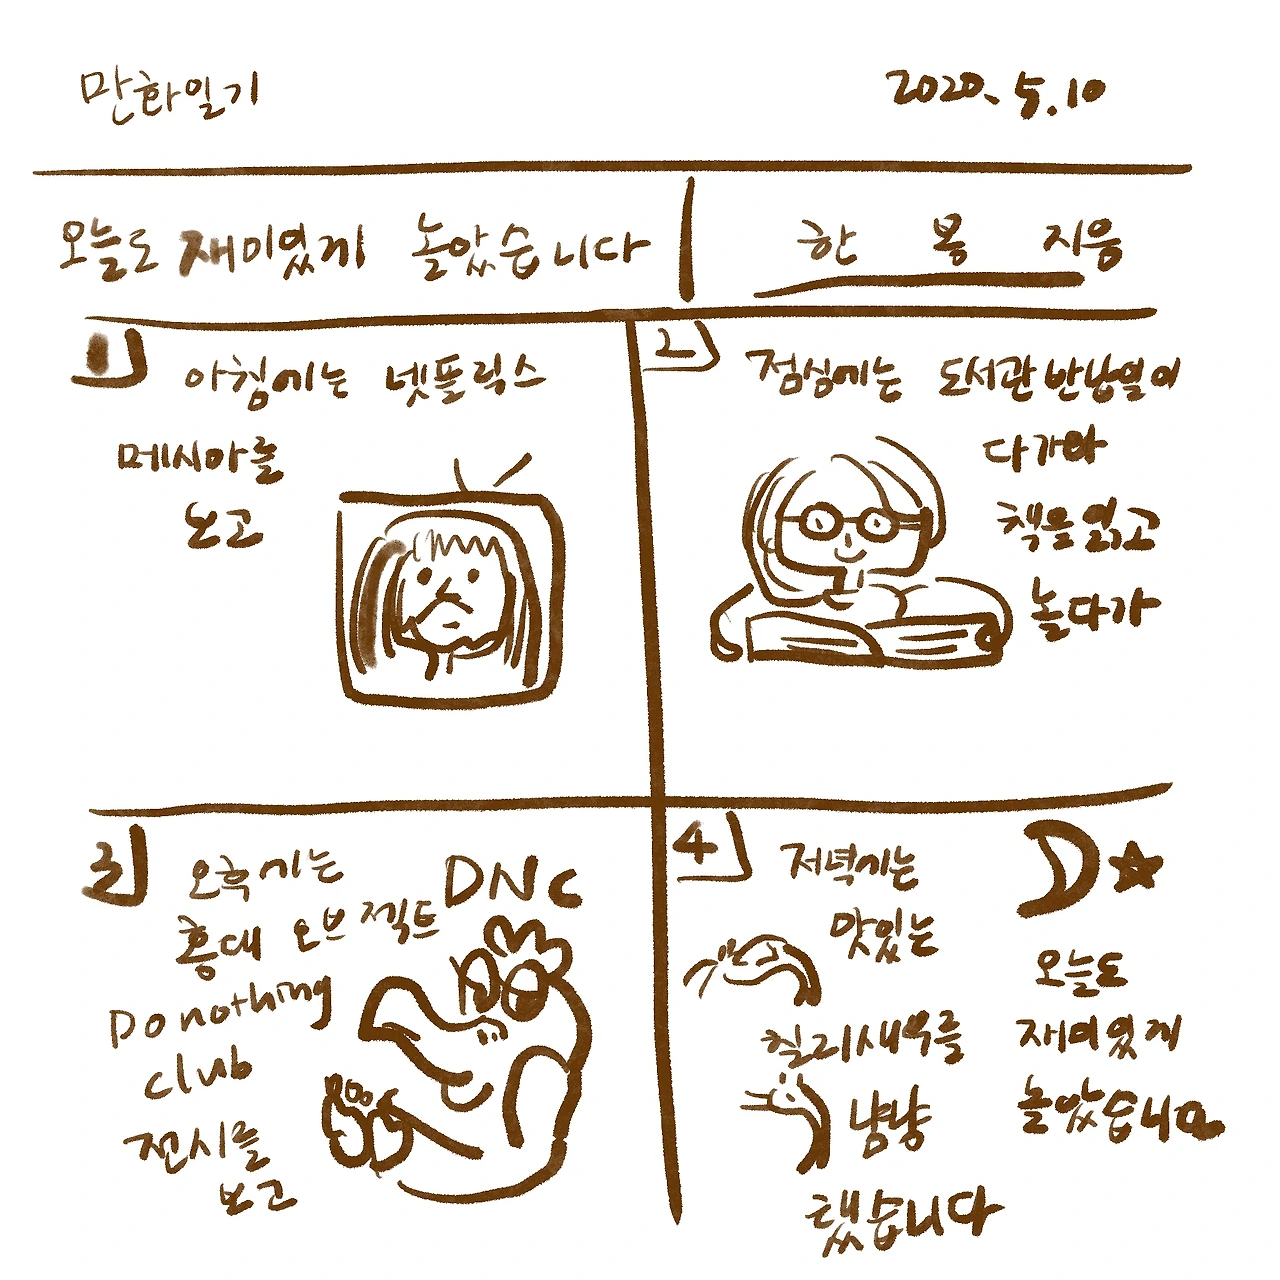 만화일기
2020.5.10
오늘도 재미있게 놀았습니다
한 봄 지음
1
아침에는 넷플릭스
메시아를
보고
2
점심에는 도서관 반납일이
다가와
책을 읽고
놀다가
3
오후에는
홍대 오브젝트
Donothing
club
전시를
보고
DNC
4
저녁에는
맛있는
칠리새우를
냠냠
했습니다
오늘도
재미있게
놀았습니다